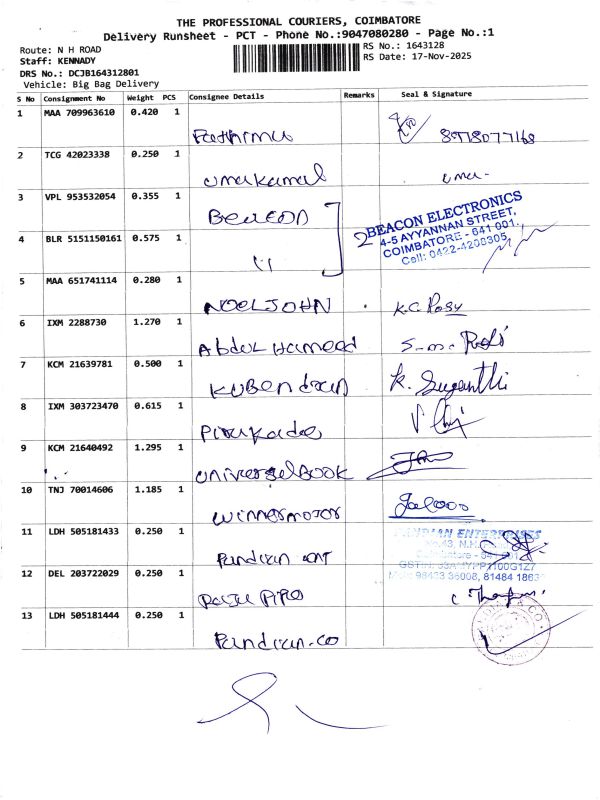 THE PROFESSIONAL COURIERS, COIMBATORE
Delivery Runsheet - PCT - Phone No.:9047080280 - Page No.:1
Route: N H ROAD
RS No.: 1643128
Staff: KENNADY
RS Date: 17-Nov-2025
DRS No.: DCJB164312801
Vehicle: Big Bag Delivery
S No Consignment No Weight PCS Consignee Details Remarks Seal & Signature
1 MAA 709963610 0.420 1 Fathima
2 TCG 42023338 0.250 1 umakamal uma-
3 VPL 953532054 0.355 1 Beacon
BEACON ELECTRONICS
4-5 AYYANNAN STREET,
COIMBATORE - 641 001.
Cell: 0422-4208305
4 BLR 5151150161 0.575 1 "
5 MAA 651741114 0.280 1 NOELJOHN K.C. Rosy
6 IXM 2288730 1.270 1 Abdul Hameed
7 KCM 21639781 0.500 1 KUBendran K. Suganthi
8 IXM 303723470 0.615 1
9 KCM 21640492 1.295 1 universelBOOK
10 TNJ 70014606 1.185 1 winnermotor
11 LDH 505181433 0.250 1 Pandian ENT
PANDIAN ENTERPRISES
12 DEL 203722029 0.250 1
13 LDH 505181444 0.250 1 Pandian.co